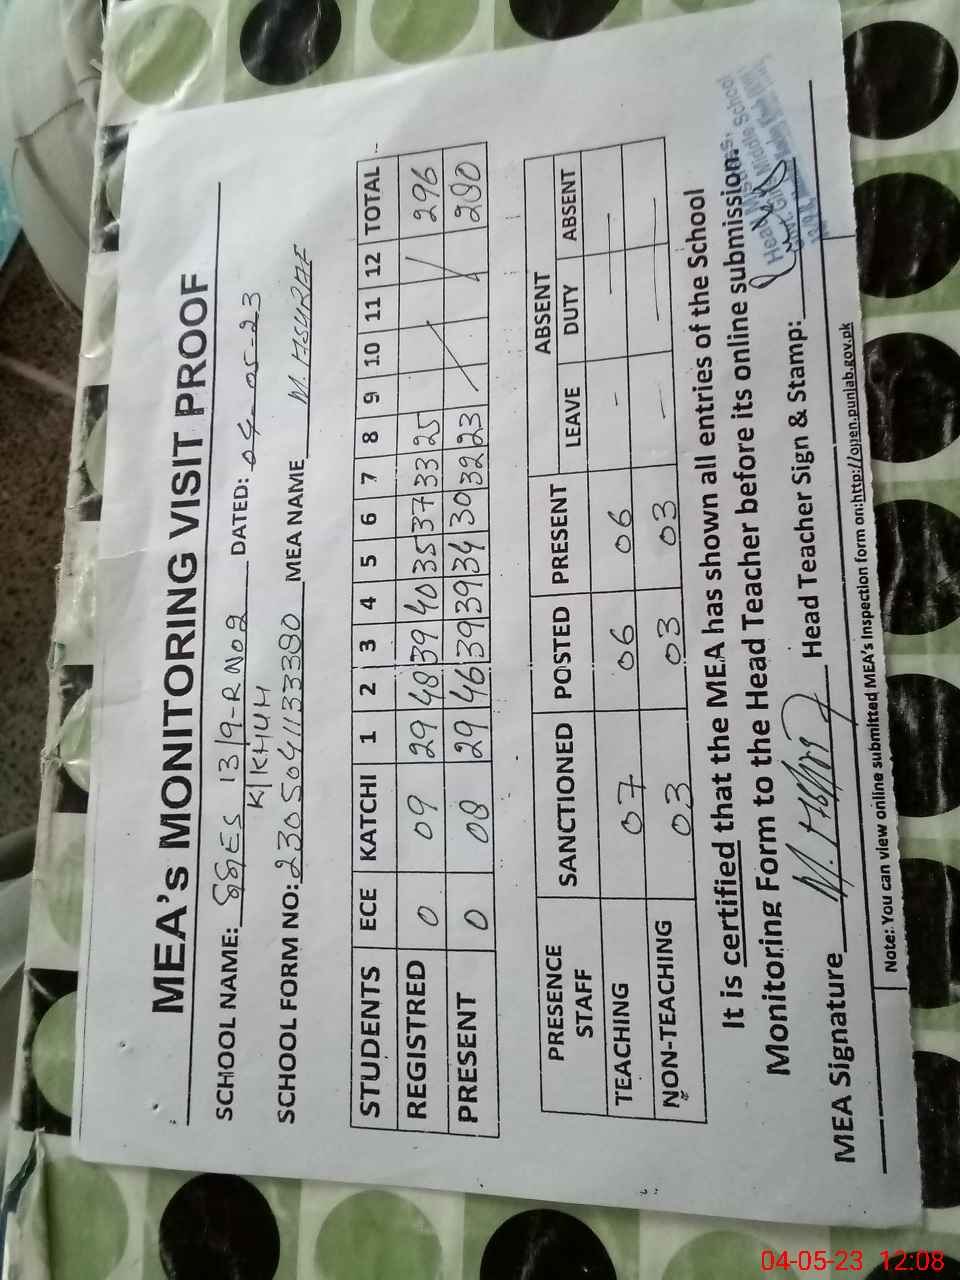 MEA's MONITORING VISIT PROOF
SCHOOL NAME: GGES 13/9-R No2 DATED: 04-05-23
K/KHUH
SCHOOL FORM NO: 230504113380 MEA NAME M. ASHRAF
STUDENTS ECE KATCHI 1 2 3 4 5 6 7 8 9 10 11 12 TOTAL
REGISTRED 0 09 29 48 39 40 35 37 33 25 296
PRESENT 0 08 29 46 39 39 34 30 32 23 280
PRESENCE STAFF SANCTIONED POSTED PRESENT ABSENT
LEAVE DUTY ABSENT
TEACHING 07 06 06 - - -
NON-TEACHING 03 03 03 - - -
It is certified that the MEA has shown all entries of the School
Monitoring Form to the Head Teacher before its online submission.
MEA Signature M. Ashraf Head Teacher Sign & Stamp:
Head Mistress,
Govt. Girls Middle School
Note: You can view online submitted MEA's Inspection form on:http://open.punjab.gov.pk
04-05-23 12:08